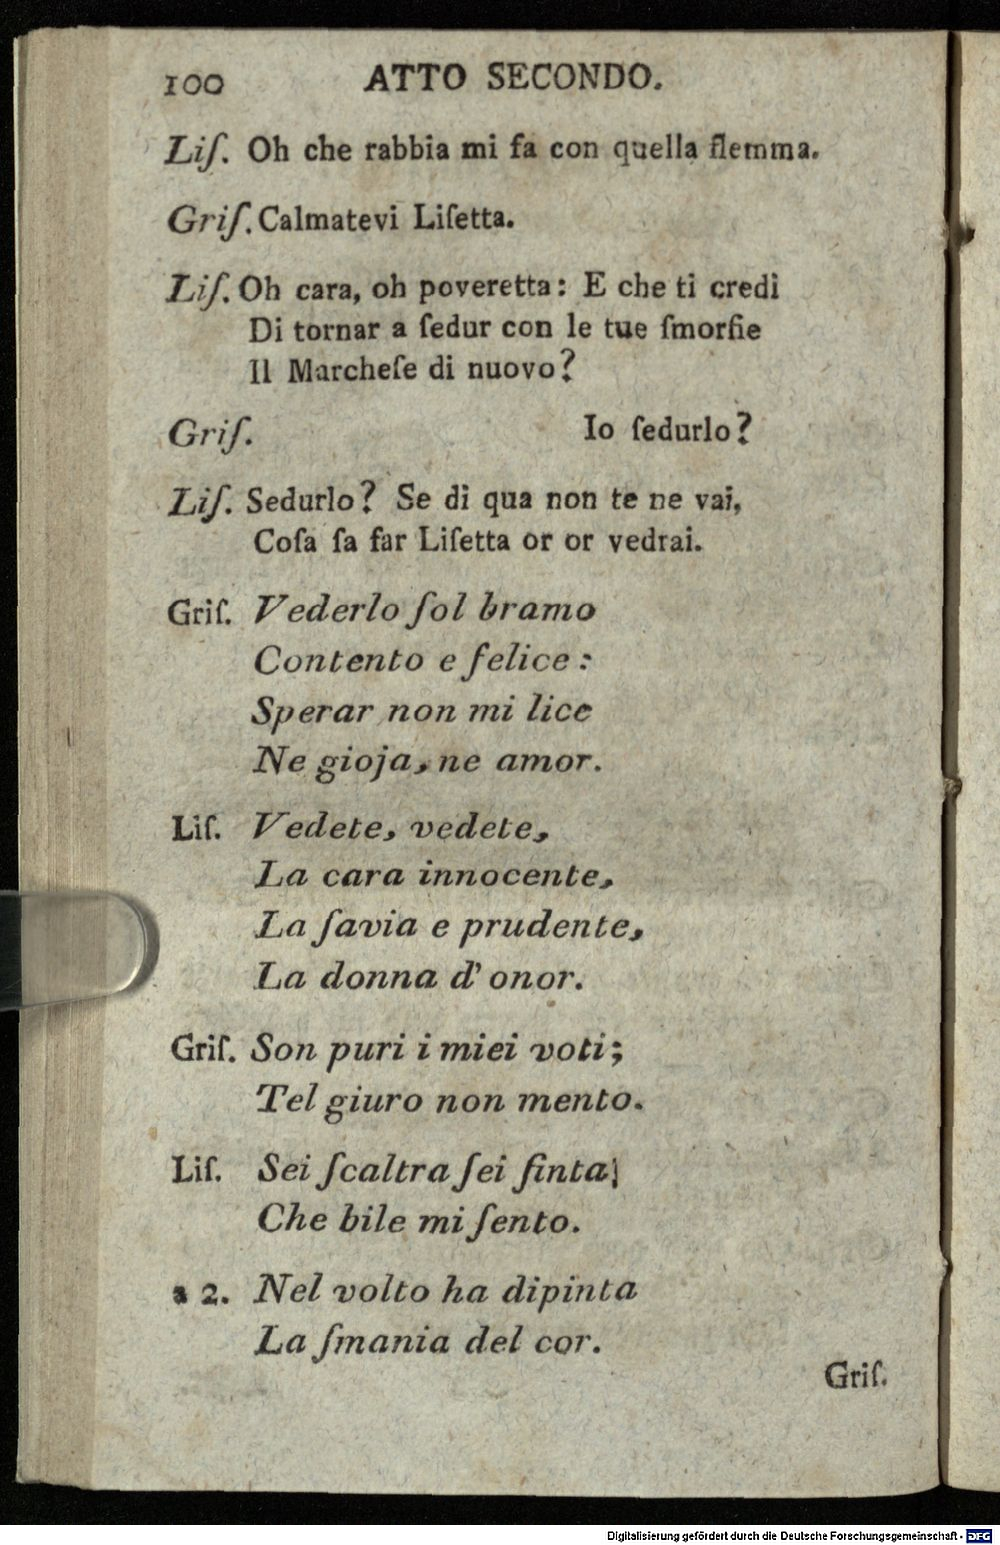 100 ATTO SECONDO.
Liſ. Oh che rabbia mi fa con quella flemma.
Griſ. Calmatevi Liſetta.
Liſ. Oh cara, oh poveretta: E che ti credi
Di tornar a ſedur con le tue ſmorfie
Il Marcheſe di nuovo?
Griſ. Io ſedurlo?
Liſ. Sedurlo? Se di qua non te ne vai,
Coſa ſa far Liſetta or or vedrai.
Griſ. Vederlo ſol bramo
Contento e felice:
Sperar non mi lice
Ne gioja, ne amor.
Liſ. Vedete, vedete,
La cara innocente,
La ſavia e prudente,
La donna d' onor.
Griſ. Son puri i miei voti;
Tel giuro non mento.
Liſ. Sei ſcaltra ſei finta;
Che bile mi ſento.
a 2. Nel volto ha dipinta
La ſmania del cor.
Griſ.
Digitalisierung gefördert durch die Deutsche Forschungsgemeinschaft - DFG